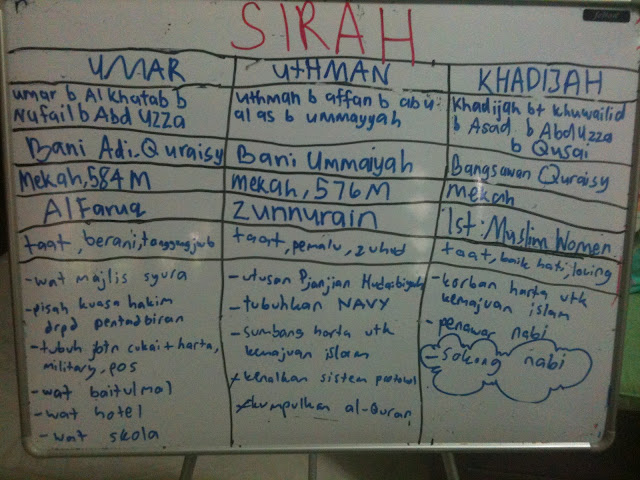 SIRAH
UMAR
umar b Al Khatab b
Nufail b Abd Uzza
Bani Adi-Quraisy
Mekah, 584 M
Al Faruq
taat, berani, tanggungjwb
- wat majlis syura
- pisah kuasa hakim
drpd pentadbiran
- tubuh jbtn cukai + harta,
military, pos
- wat baitulmal
- wat hotel
- wat skola
UtHMAN
uthman b affan b abu
al as b ummayyah
Bani Ummaiyah
mekah, 576 M
Zunnurain
taat, pemalu, zuhud
- utusan Pjanjian Hudaibiyah
- tubuhkan NAVY
- sumbang harta utk
kemajuan islam
- kenalkan sistem protokol
- kumpulkan al-Quran
KHADIJAH
Khadijah bt Khuwailid
b Asad b Abd Uzza
b Qusai
Bangsawan Quraisy
mekah
1st Muslim Women
taat, baik hati, loving
- korban harta utk
kemajuan islam
- penawar nabi
- sokong nabi